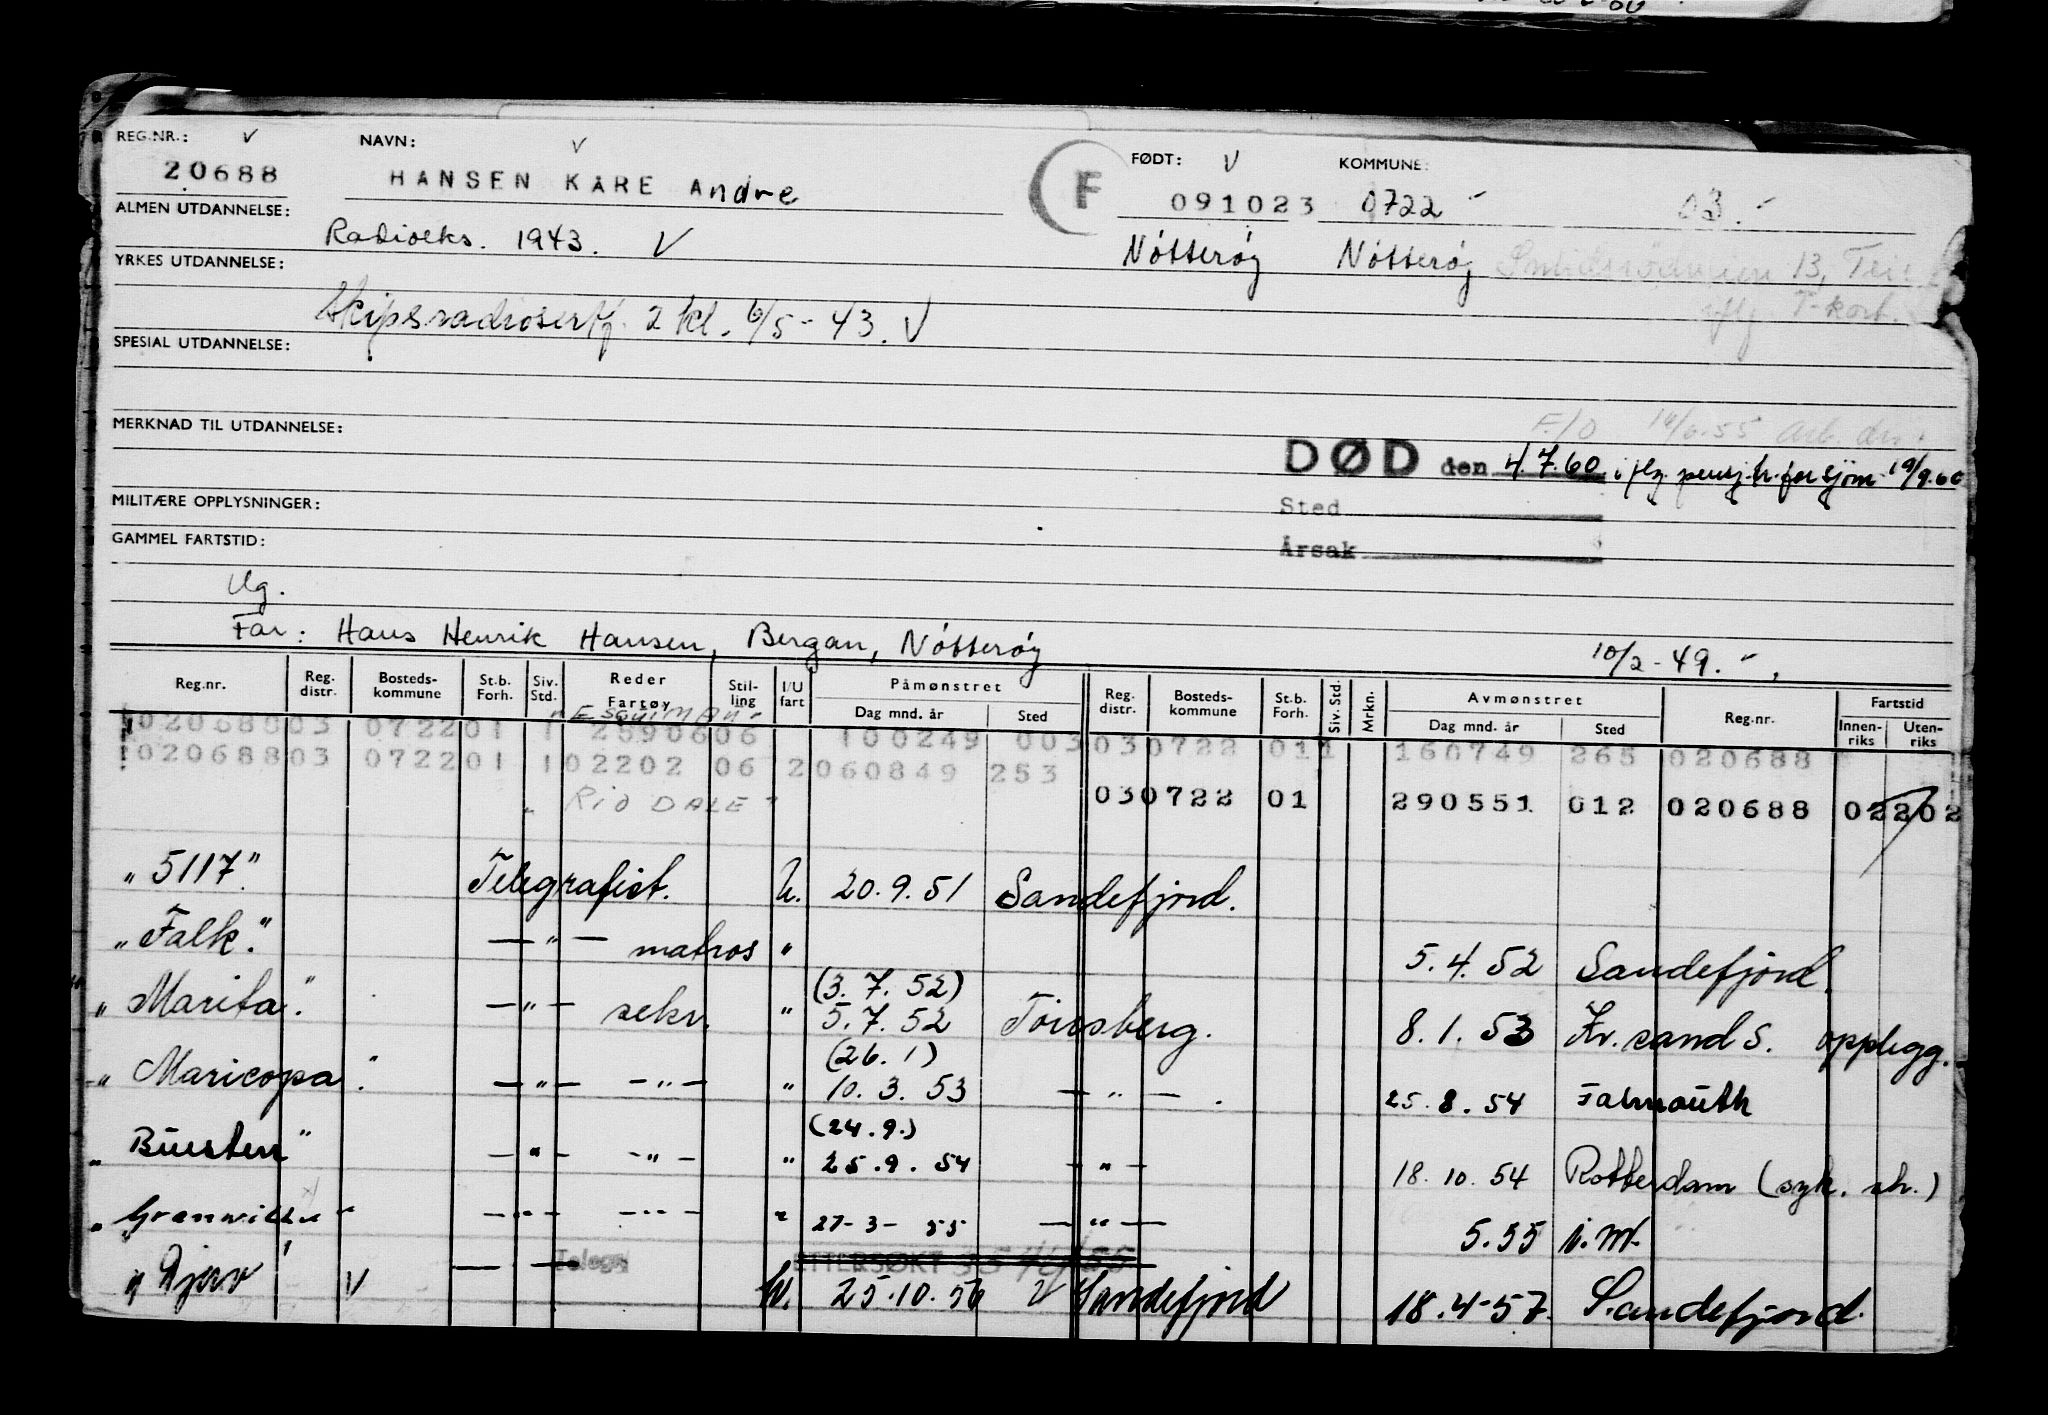 REG.NR.: V NAVN: V FØDT: V KOMMUNE:
20688 HANSEN KÅRE Andre F 091023 0722 03.-
ALMEN UTDANNELSE: Radioeks. 1943. V Nötterøy Nötterøy 13,
YRKES UTDANNELSE: T-kort.
Skipsradiosertf. 2 kl. 6/5-43. V
SPESIAL UTDANNELSE:
MERKNAD TIL UTDANNELSE:
DØD den 4.7.60 iflg. pensj.tr. for sjöm. 19/9.60
MILITÆRE OPPLYSNINGER: Sted
GAMMEL FARTSTID: Årsak
Ug.
Far: Hans Henrik Hansen, Bergan, Nötterøy 10/2-49.-
Reg.nr. Reg. distr. Bosteds-kommune St.b. Forh. Siv. Std. Reder Fartøy Stil-ling I/U fart Påmønstret Dag mnd. år Sted Reg. distr. Bosteds-kommune St.b. Forh. Siv. Std. Mrkn. Avmønstret Dag mnd. år Sted Reg.nr. Fartstid Innen-riks Uten-riks
"Esquiman"
020688 03 0722 01 1 25906 06 100249 003 03 0722 01 1 160749 265 020688
020688 03 0722 01 1 02202 06 2 060849 253
"Rid DALE" 03 0722 01 290551 012 020688 02202
"5117" Telegrafist. U. 20.9.51 Sandefjord.
"Falk." — " — matros " 5.4.52 Sandefjord.
(3.7.52)
"Marita." — " — sekr. " 5.7.52 Tönsberg. 8.1.53 Kr.sand S. opplegg.
(26.1)
"Maricopa". — " — — " — " 10.3.53 — " — . 25.8.54 Falmouth
(24.9.)
"Buesten" — " — — " — " 25.9.54 — " — 18.10.54 Rotterdam (syk. sh.)
"Granville" — " — — " — " 27-3-55 — " — 5.55 i.m.
Telegr ETTERSØKT
"Djerv" V — — U. 25.10.56 V Sandefjord 18.4-57. Sandefjord.